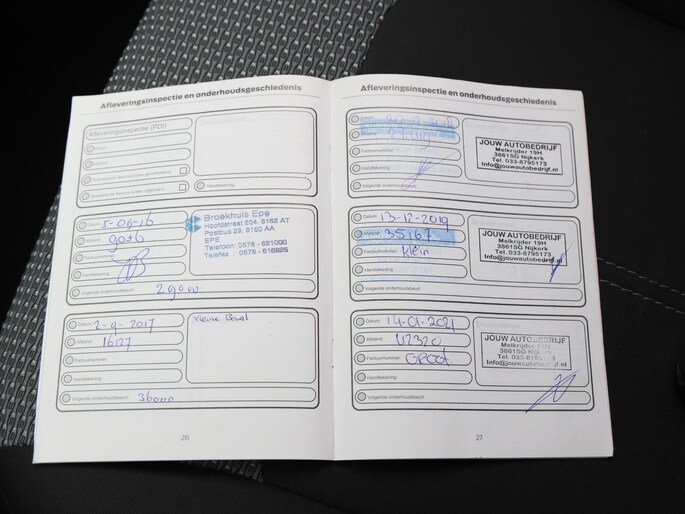 Afleveringsinspectie en onderhoudsgeschiedenis
Afleveringsinspectie (PDI)
Datum
Handtekening
Datum 5-06-16
Afstand
Factuurnummer
Handtekening
Volgende onderhoudsbeurt 29000
Broekhuis Epe
Hoofdstraat 204, 8162 AT
Postbus 29, 8160 AA
EPE
Telefoon: 0578 - 621000
Telefax : 0578 - 616825
Datum 2-9-2017
Afstand 16127
Factuurnummer
Handtekening
Volgende onderhoudsbeurt 36000
Kleine Beurt
26
Afleveringsinspectie en onderhoudsgeschiedenis
Datum
Afstand
Factuurnummer
Handtekening
Volgende onderhoudsbeurt
JOUW AUTOBEDRIJF
Melkrijder 19H
3861SG Nijkerk
Tel. 033-8795173
Info@jouwautobedrijf.nl
Datum 13-12-2019
Afstand 35167
Factuurnummer Klein
Handtekening
Volgende onderhoudsbeurt
JOUW AUTOBEDRIJF
Melkrijder 19H
3861SG Nijkerk
Tel. 033-8795173
Info@jouwautobedrijf.nl
Datum 14-01-2021
Afstand 42320
Factuurnummer Groot
Handtekening
Volgende onderhoudsbeurt
JOUW AUTOBEDRIJF
Melkrijder 19H
3861SG Nijkerk
Tel. 033-8795173
Info@jouwautobedrijf.nl
27